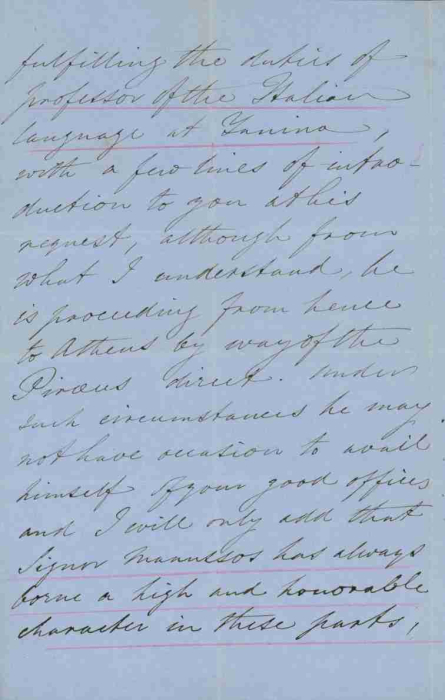 fulfilling the duties of
professor of the Italian
language at Yanina,
with a few lines of intro-
duction to you at his
request, although from
what I understand, he
is proceeding from hence
to Athens by way of the
Piræus direct. Under
such circumstances he may
not have occasion to avail
himself of your good offices,
and I will only add that
Signor Manussos has always
borne a high and honorable
character in these parts,